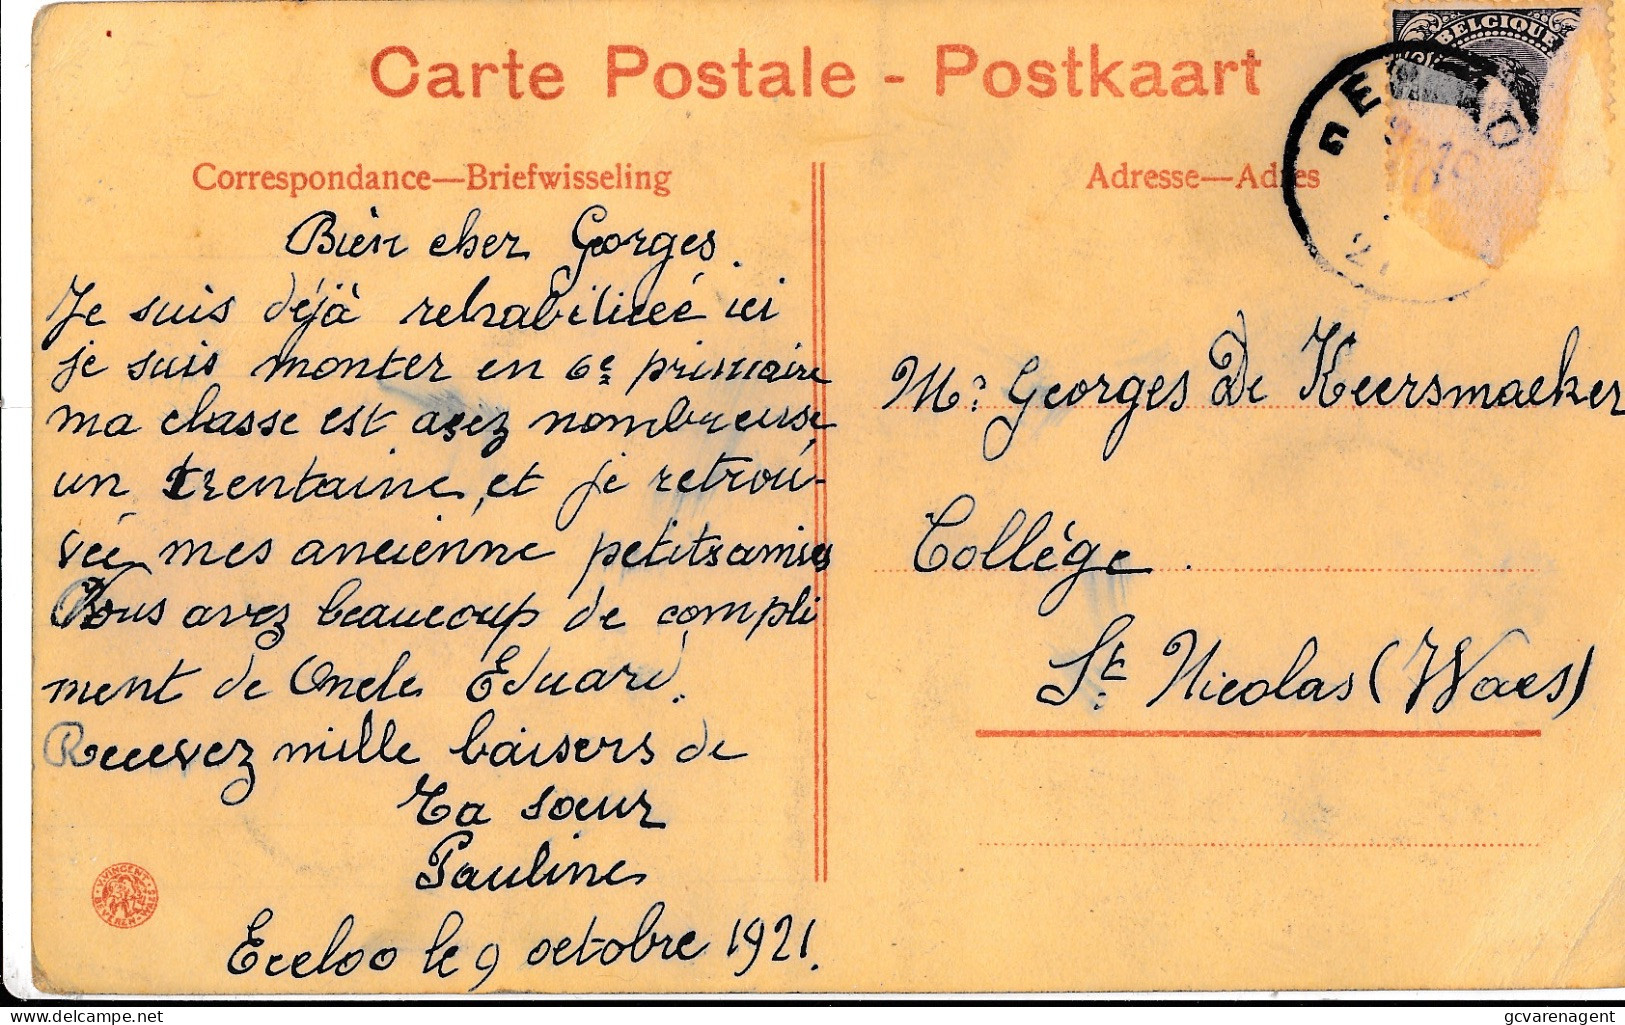 Carte Postale - Postkaart
BELGIQUE
Correspondance—Briefwisseling
Bien cher Georges.
Je suis déjà rehabilitéé ici
je suis monter en 6e primaire
ma classe est asez nombreuse
un trentaine, et je retrou-
vée mes ancienne petitsamies
Vous avez beaucoup de compli
ment de Oncle Eduard.
Recevez mille baisers de
Ta sœur
Pauline
Eecloo le 9 octobre 1921.
V. VINCENT
BEVEREN-WAES
Adresse—Adres
Mr. Georges De Keersmaeker
Collége.
St. Nicolas (Waes)
gcvarenagent